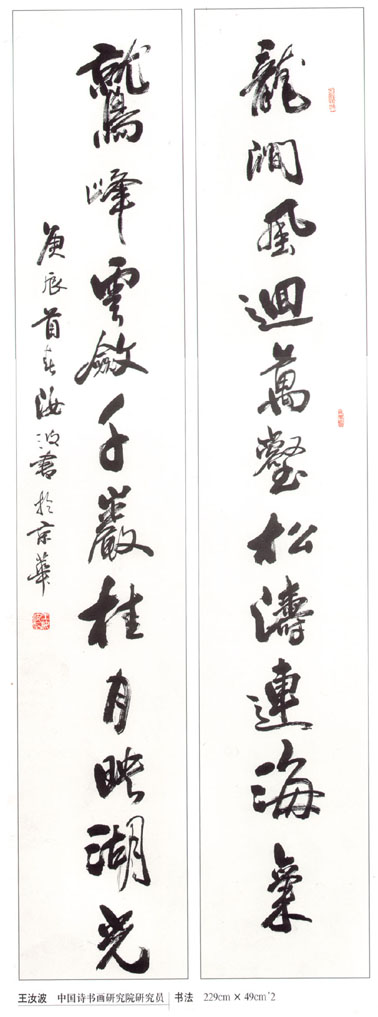 龍澗風迴萬壑松濤連海氣
鷲峰雲斂千巖桂月映湖光
庚辰首春汝波書於京華
王汝波 中国诗书画研究院研究员 书法 229cm × 49cm*2